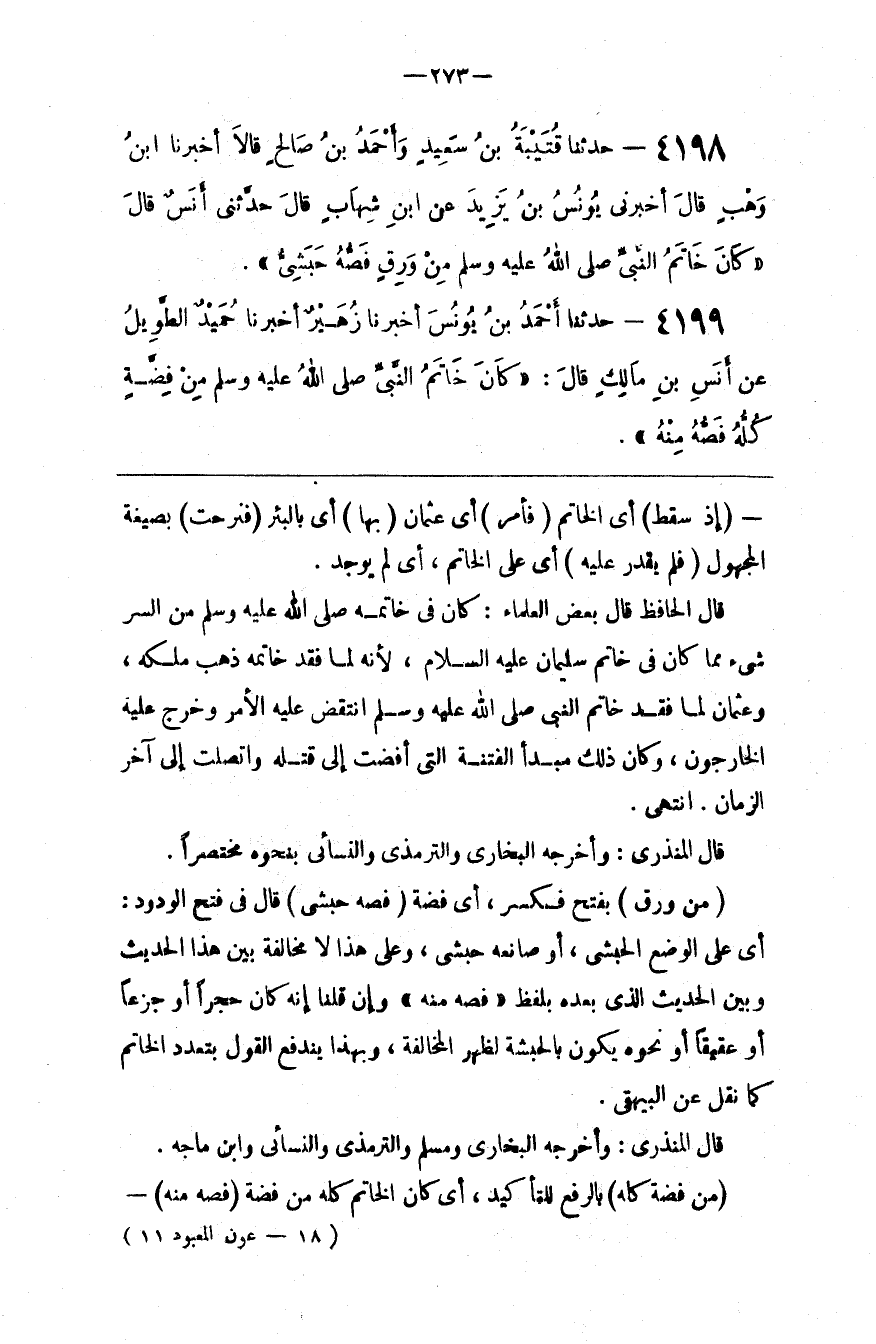 —٢٧٣—
٤١٩٨ — حدثنا قُتَيْبَةُ بنُ سَعِيدٍ وَأَحْمَدُ بنُ صَالحٍ قالاَ أخبرنا ابنُ
وَهْبٍ قالَ أخبرنى يُونُسُ بنُ يَزِيدَ عن ابنِ شِهاَبٍ قالَ حدَّثنى أَنَسٌ قالَ
« كَانَ خَاتَمُ النَّبىِّ صلى اللهُ عليه وسلم مِنْ وَرِقٍ فَصُّهُ حَبَشِىٌّ » .
٤١٩٩ — حدثنا أَحْمَدُ بنُ يُونُسَ أخبرنا زُهَيْرٌ أخبرنا حُمَيْدٌ الطَّوِيلُ
عن أَنَسِ بنِ مَالِكٍ قالَ : « كَانَ خَاتَمُ النَّبىِّ صلى اللهُ عليه وسلم مِنْ فِضَّـةٍ
كُلُّهُ فَصُّهُ مِنْهُ » .
— (إذ سقط) أى الخاتم ( فأمر ) أى عثمان ( بها ) أى بالبئر (فنزحت) بصيغة
المجهول ( فلم يقدر عليه ) أى على الخاتم ، أى لم يوجد .
قال الحافظ قال بعض العلماء : كان فى خاتمـه صلى الله عليه وسلم من السر
شىء مما كان فى خاتم سليمان عليه السـلام ، لأنه لمـا فقد خاتمه ذهب ملـكه ،
وعثمان لمـا فقـد خاتم النبى صلى الله عليه وسـلم انتقض عليه الأمر وخرج عليه
الخارجون ، وكان ذلك مبـدأ الفتنـة التى أفضت إلى قتـله واتصلت إلى آخر
الزمان . انتهى .
قال المنذرى : وأخرجه البخارى والترمذى والنسائى بنحوه مختصراً .
( من ورق ) بفتح فـكسر ، أى فضة ( فصه حبشى ) قال فى فتح الودود :
أى على الوضع الحبشى ، أو صانعه حبشى ، وعلى هذا لا مخالفة بين هذا الحديث
وبين الحديث الذى بعده بلفظ « فصه منه » وإن قلنا إنه كان حجراً أو جزعاً
أو عقيقاً أو نحوه يكون بالحبشة لظهر المخالفة ، وبهذا يندفع القول بتعدد الخاتم
كما نقل عن البيهقى .
قال المنذرى : وأخرجه البخارى ومسلم والترمذى والنسائى وابن ماجه .
(من فضة كله) بالرفع للتأكيد ، أى كان الخاتم كله من فضة (فصه منه) —
( ١٨ — عون المعبود ١١ )